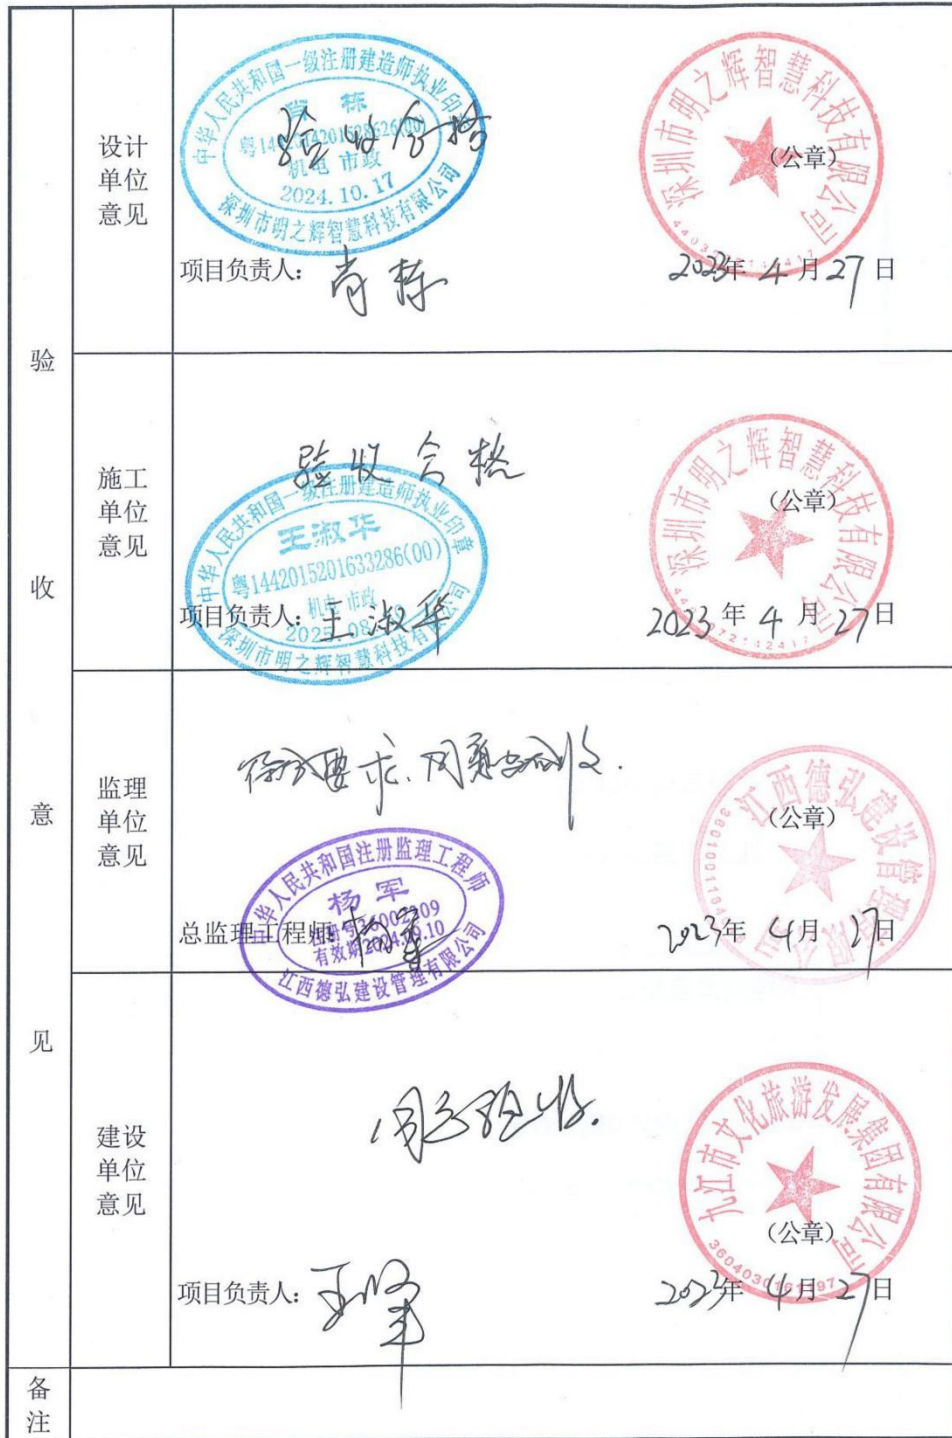 验收意见
设计单位意见
中华人民共和国一级注册建造师执业印章
机电 市政
2024.10.17
深圳市明之辉智慧科技有限公司
验收合格
深圳市明之辉智慧科技有限公司
(公章)
项目负责人: 肖栋
2023年 4 月 27 日
施工单位意见
验收合格
中华人民共和国一级注册建造师执业印章
王淑华
粤1442015201633286(00)
机电 市政
深圳市明之辉智慧科技有限公司
深圳市明之辉智慧科技有限公司
(公章)
项目负责人: 王淑华
2023 年 4 月 27 日
监理单位意见
符合要求、同意验收.
中华人民共和国注册监理工程师
杨军
江西德弘建设管理有限公司
江西德弘建设管理有限公司
(公章)
总监理工程师: 杨军
2023年 4月 27日
建设单位意见
同意验收.
九江市文化旅游发展集团有限公司
(公章)
项目负责人:
2023年 4月 27日
备注